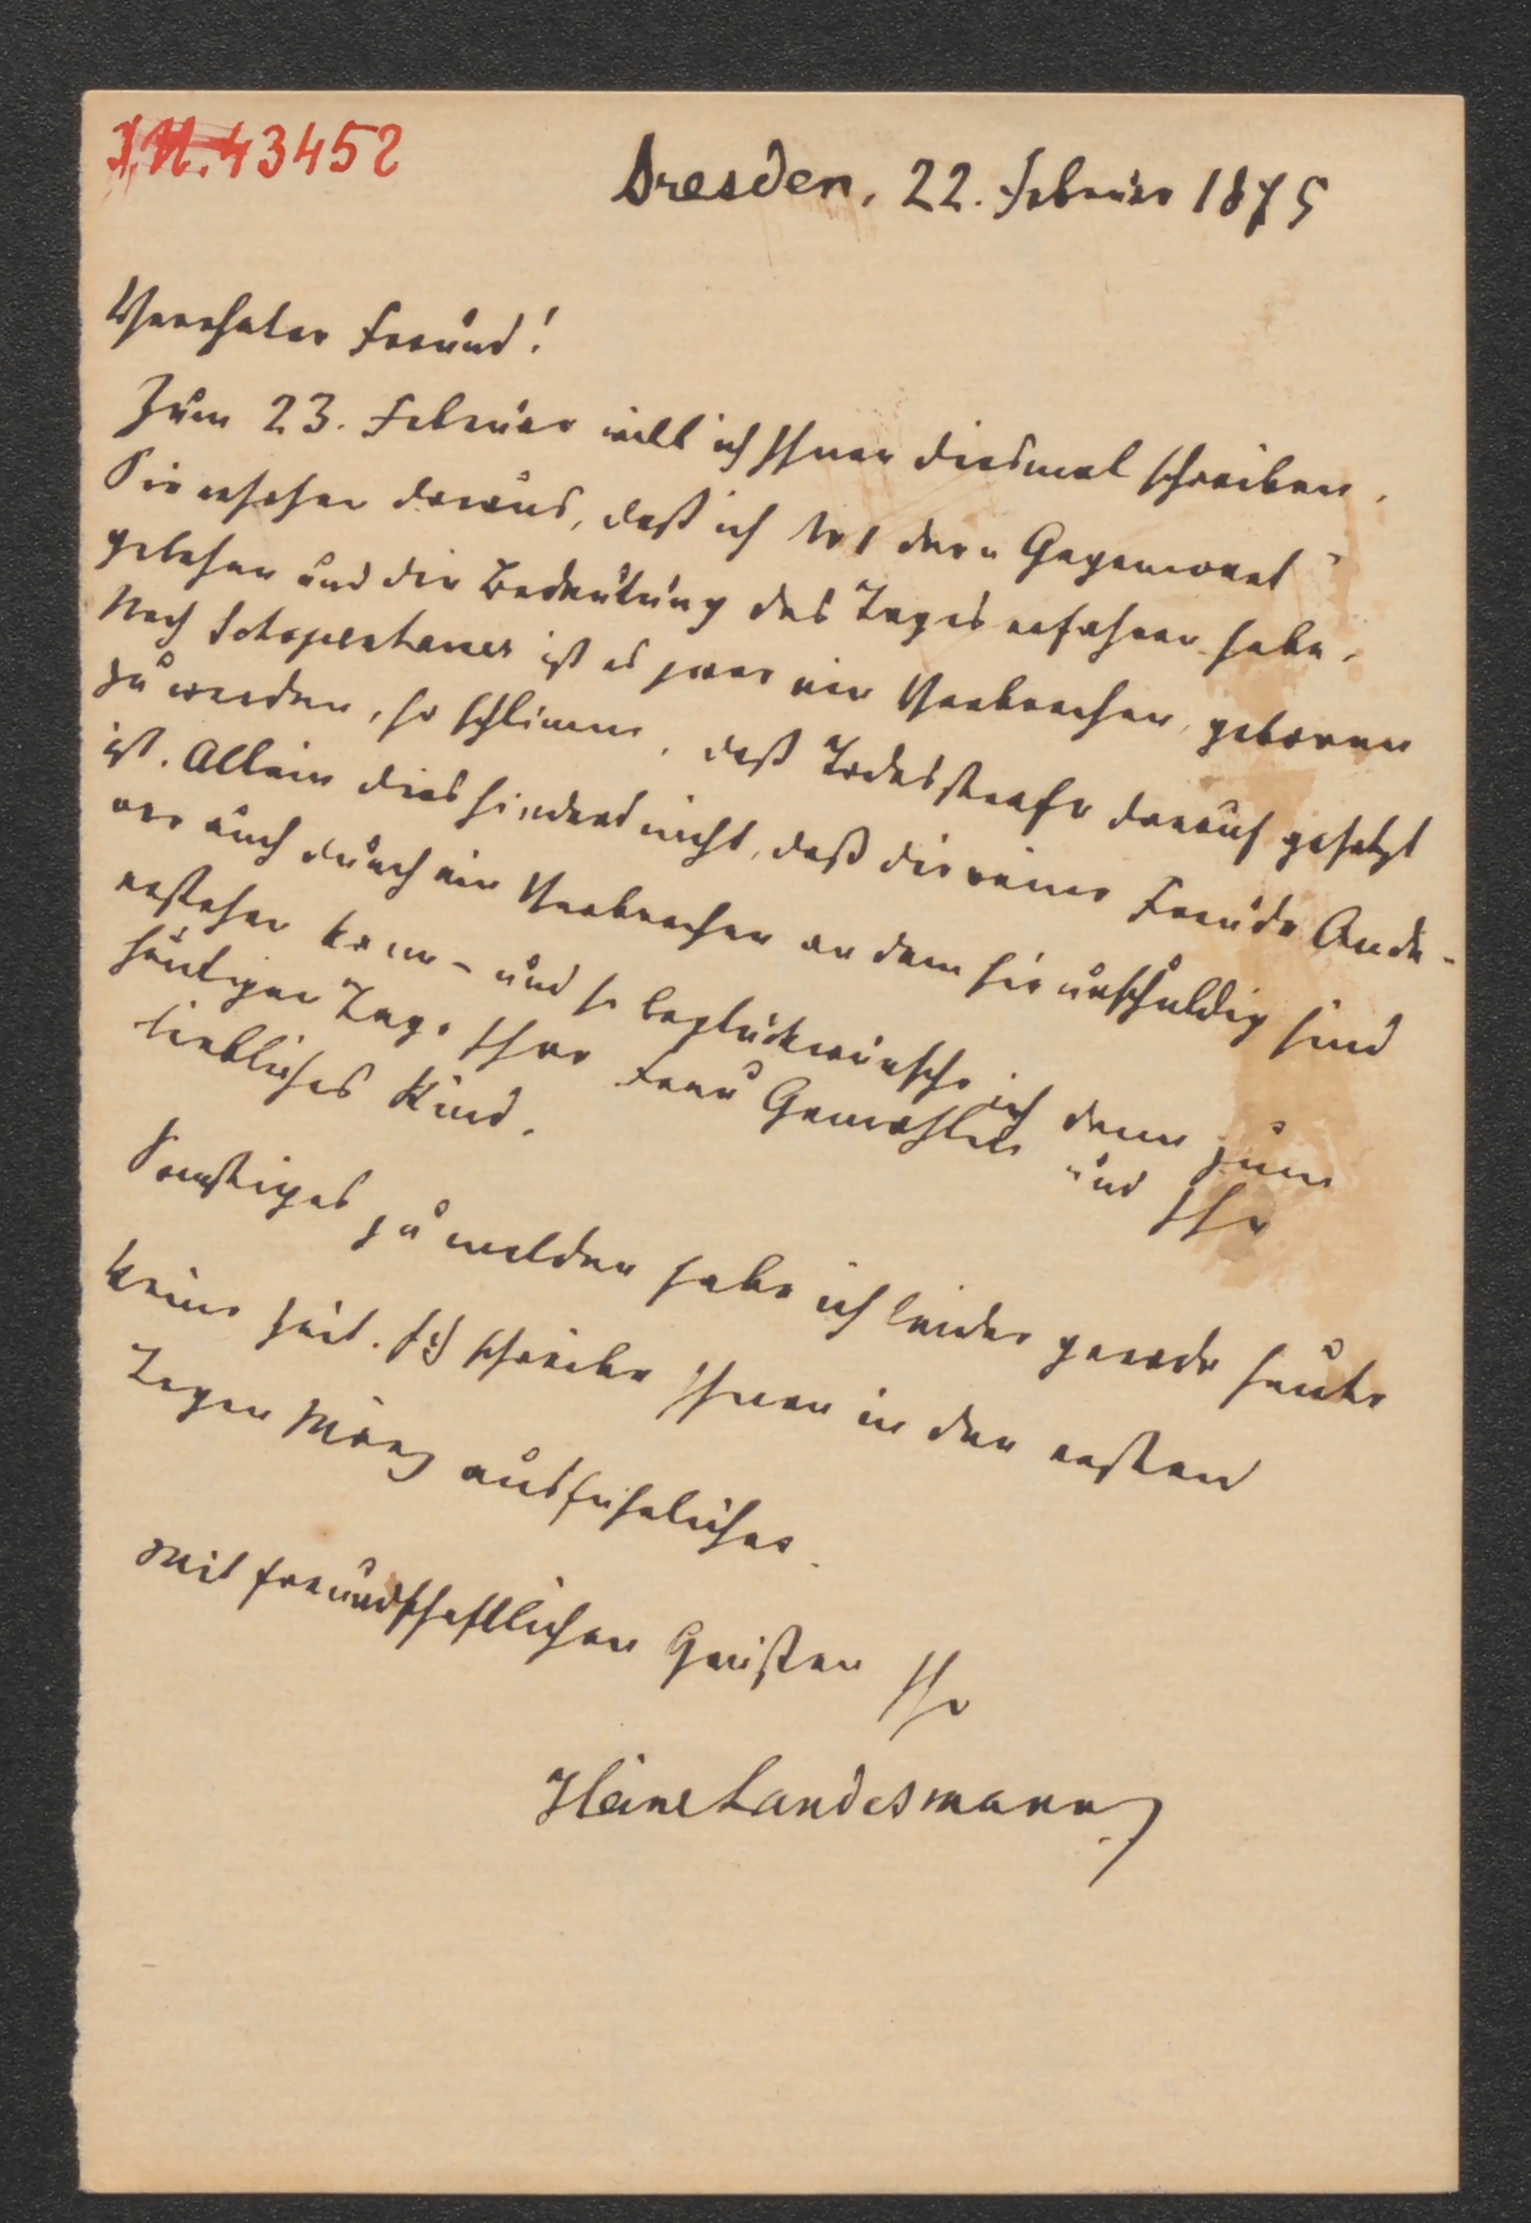 I.N. 43452
Dresden, 22. Februar 1875
Verehrter Freund!
Zum 23. Februar will ich Ihnen diesmal schreiben.
Sie ersehen daraus, daß ich No 1 der „Gegenwart"
gelesen und die Bedeutung des Tages erfahren habe.
Nach Schopenhauer ist es zwar ein Verbrechen, geboren
zu werden, so schlimm, daß Todesstrafe darauf gesetzt
ist. Allein dies hindert nicht, daß die reine Freude Ande-
rer auch durch ein Verbrechen an dem sie unschuldig sind
erstehen kann – und so beglückwünsche ich denn zum
heutigen Tage Ihre Frau Gemahlin und Ihr
liebliches Kind.
Sonstiges zu melden habe ich leider gerade heute
keine Zeit. Ich schreibe Ihnen in den ersten
Tagen März ausführlicher.
Mit freundschaftlichen Grüßen Ihr
Heinr Landesmann